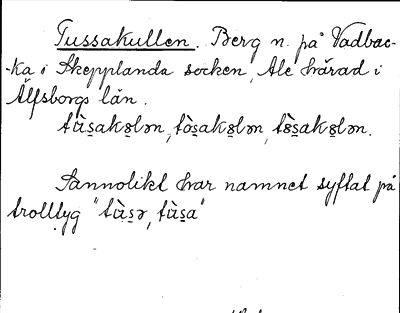 Tussakullen. Berg n. på Vadbac-
-ka i Skepplanda socken, Ale härad i
Älfsborgs län.
tùs̱akȣlən, tòs̱akȣlən, tȣ̀s̱akȣlən.
Sannolikt har namnet syftat på
trolltyg "tùs̱ə, tùs̱a"